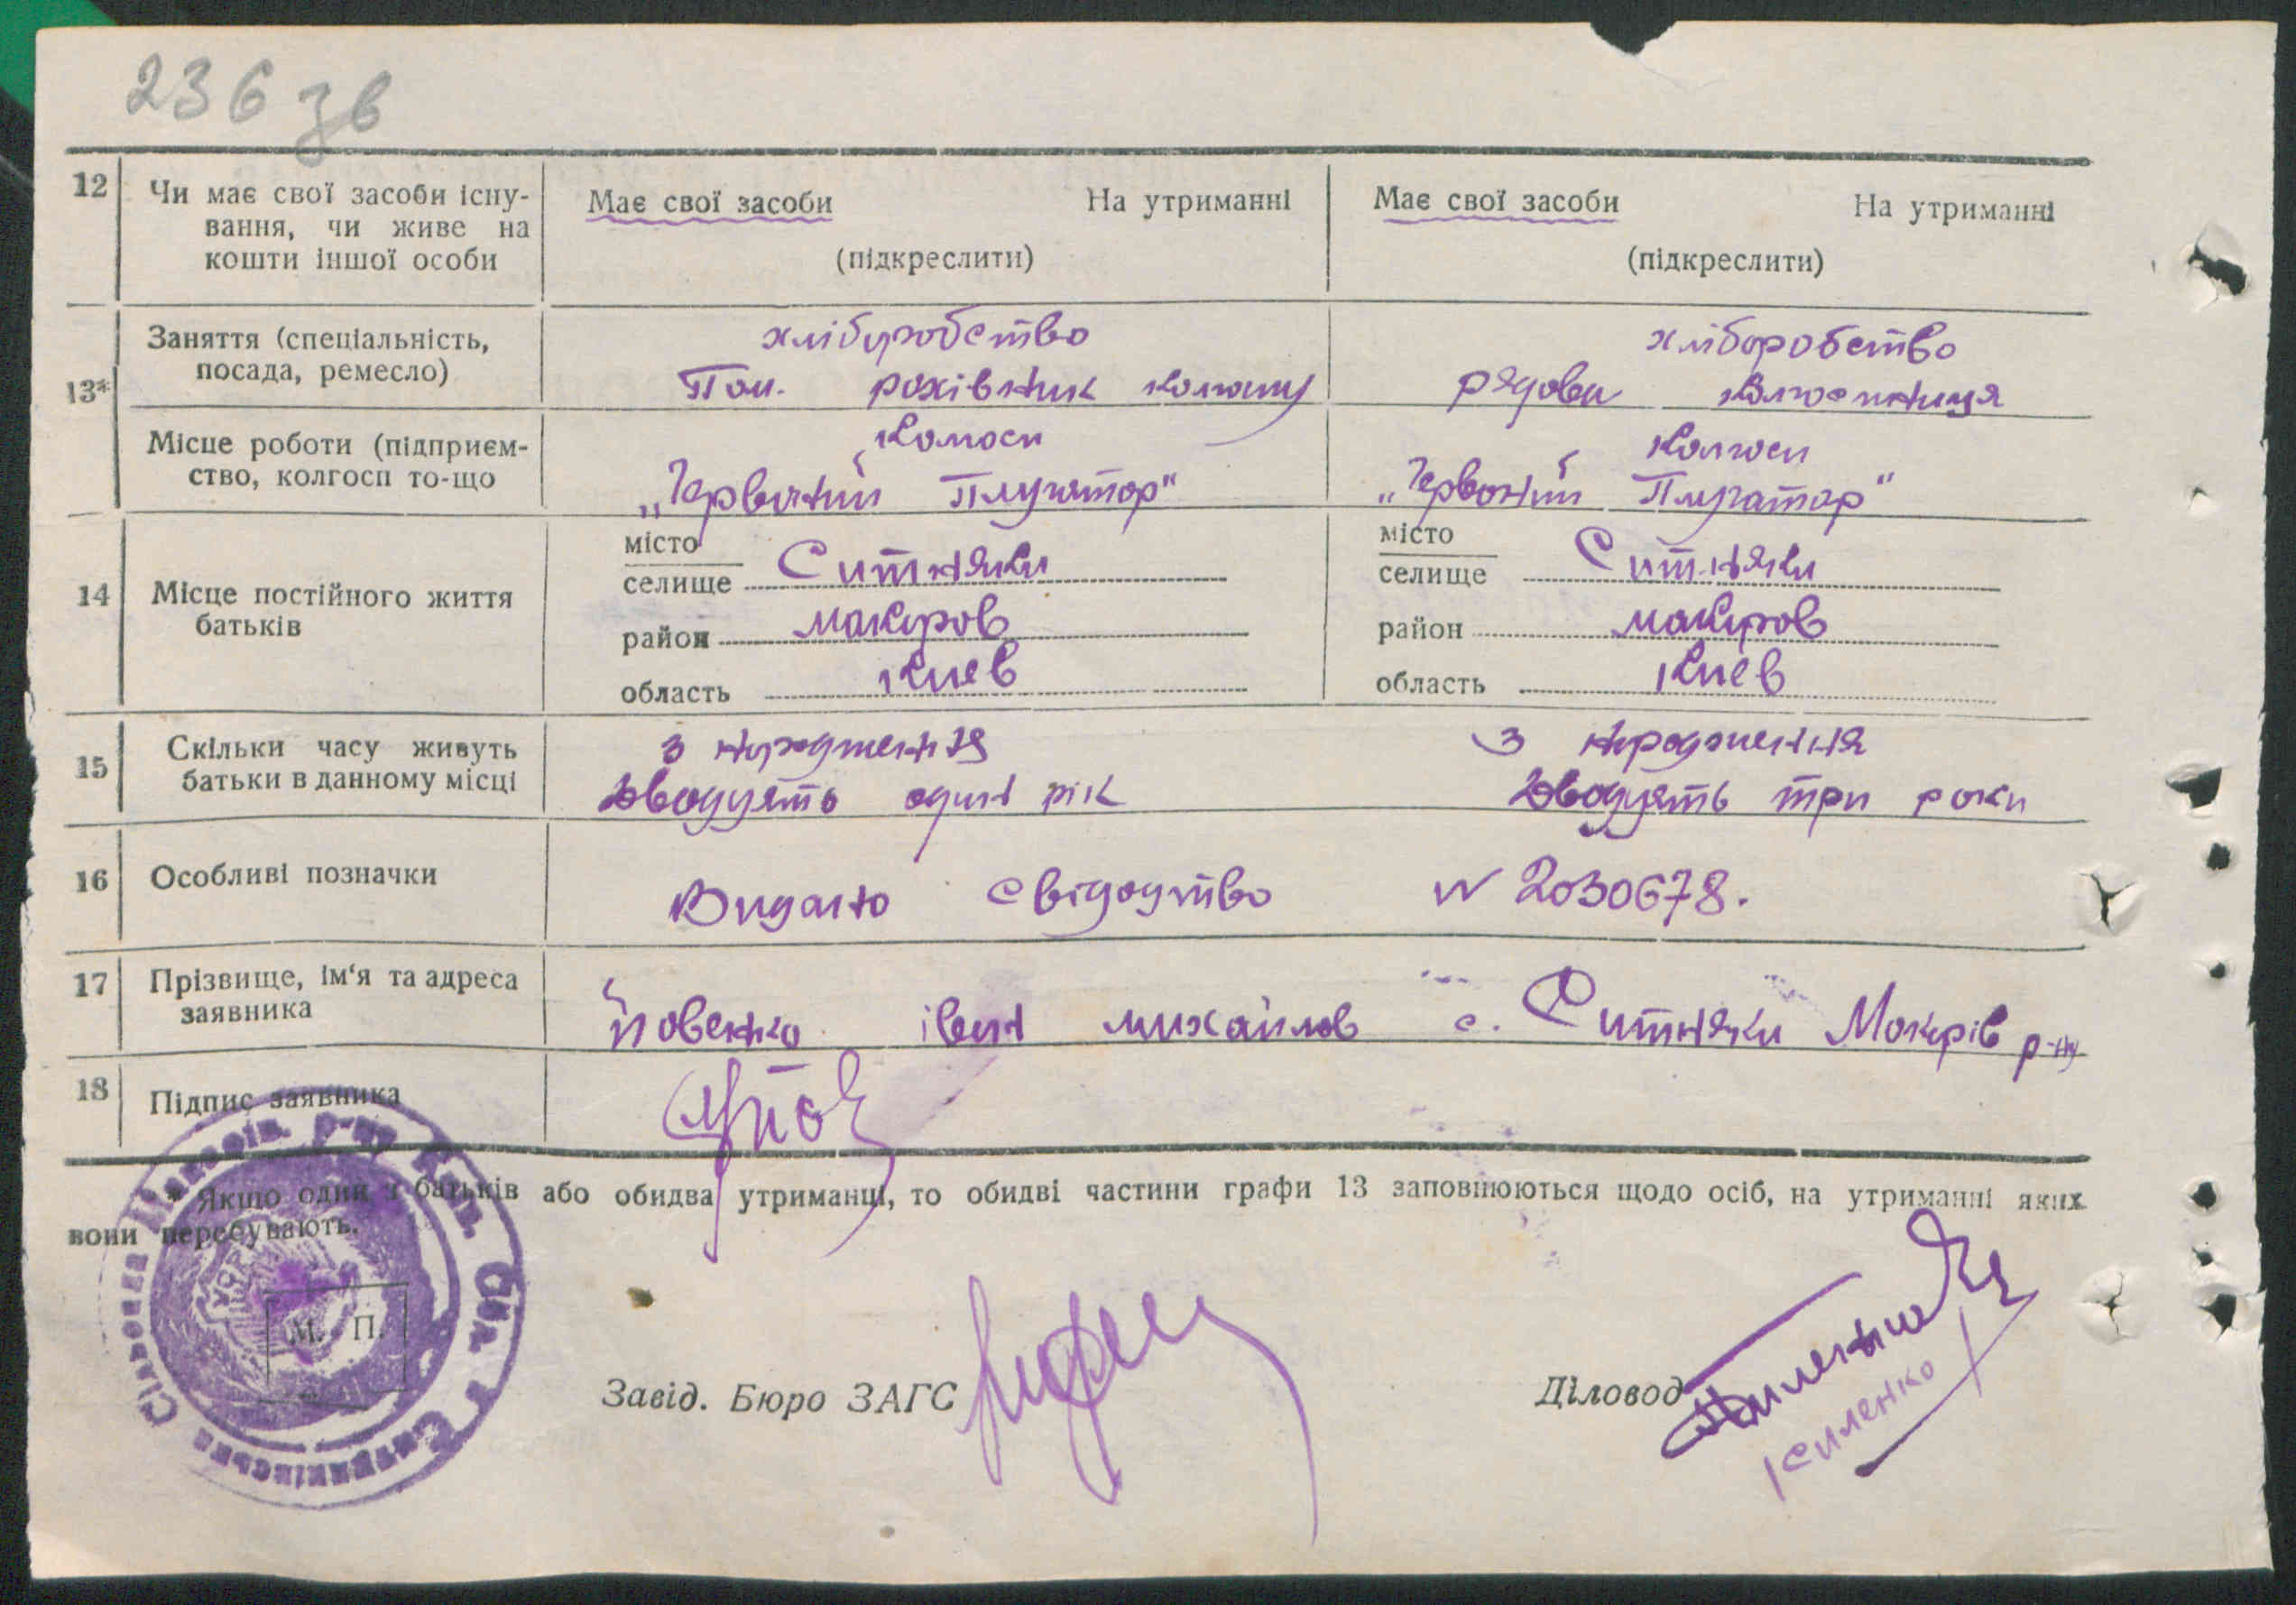 236 зв
12 Чи має свої засоби існу- Має свої засоби На утриманні Має свої засоби На утриманні
вання, чи живе на
кошти іншої особи (підкреслити) (підкреслити)
13* Заняття (спеціальність, хліборобство хліборобство
посада, ремесло) Пом. рахівник колгоспу рядова колгоспниця
Місце роботи (підприєм- Колгосп Колгосп
ство, колгосп то-що „Червоний Плугатар" „Червоний Плугатар"
14 Місце постійного життя батьків
місто
селище Ситняки
район макаров
область Киев
місто
селище Ситняки
район макаров
область Киев
15 Скільки часу живуть з народження з народження
батьки в данному місці двадцять один рік двадцять три роки
16 Особливі позначки Видано свідодтво N 2030678.
17 Прізвище, ім'я та адреса
заявника Йовенко іван михайлов с. Ситняки Макарів р-ну
18 Підпис заявника
* Якщо один з батьків або обидва утриманці, то обидві частини графи 13 заповнюються щодо осіб, на утриманні яких
вони перебувають.
М. П.
Сільська Ситняківська
Завід. Бюро ЗАГС
Діловод
Киленко